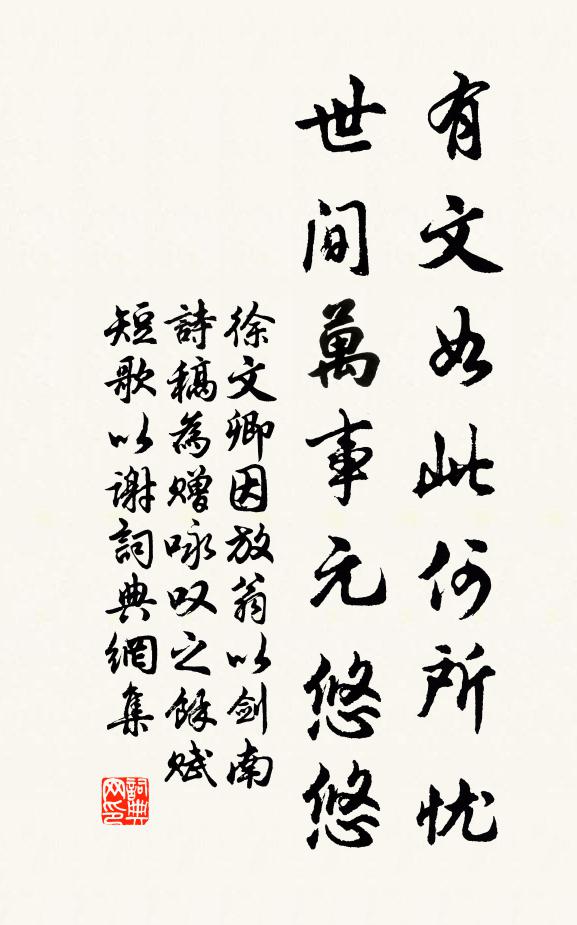 有文如此何所忧
世间萬事元悠悠
徐文卿因放翁以剑南
詩稿為赠咏叹之馀赋
短歌以谢詞典網集
詞典
网印